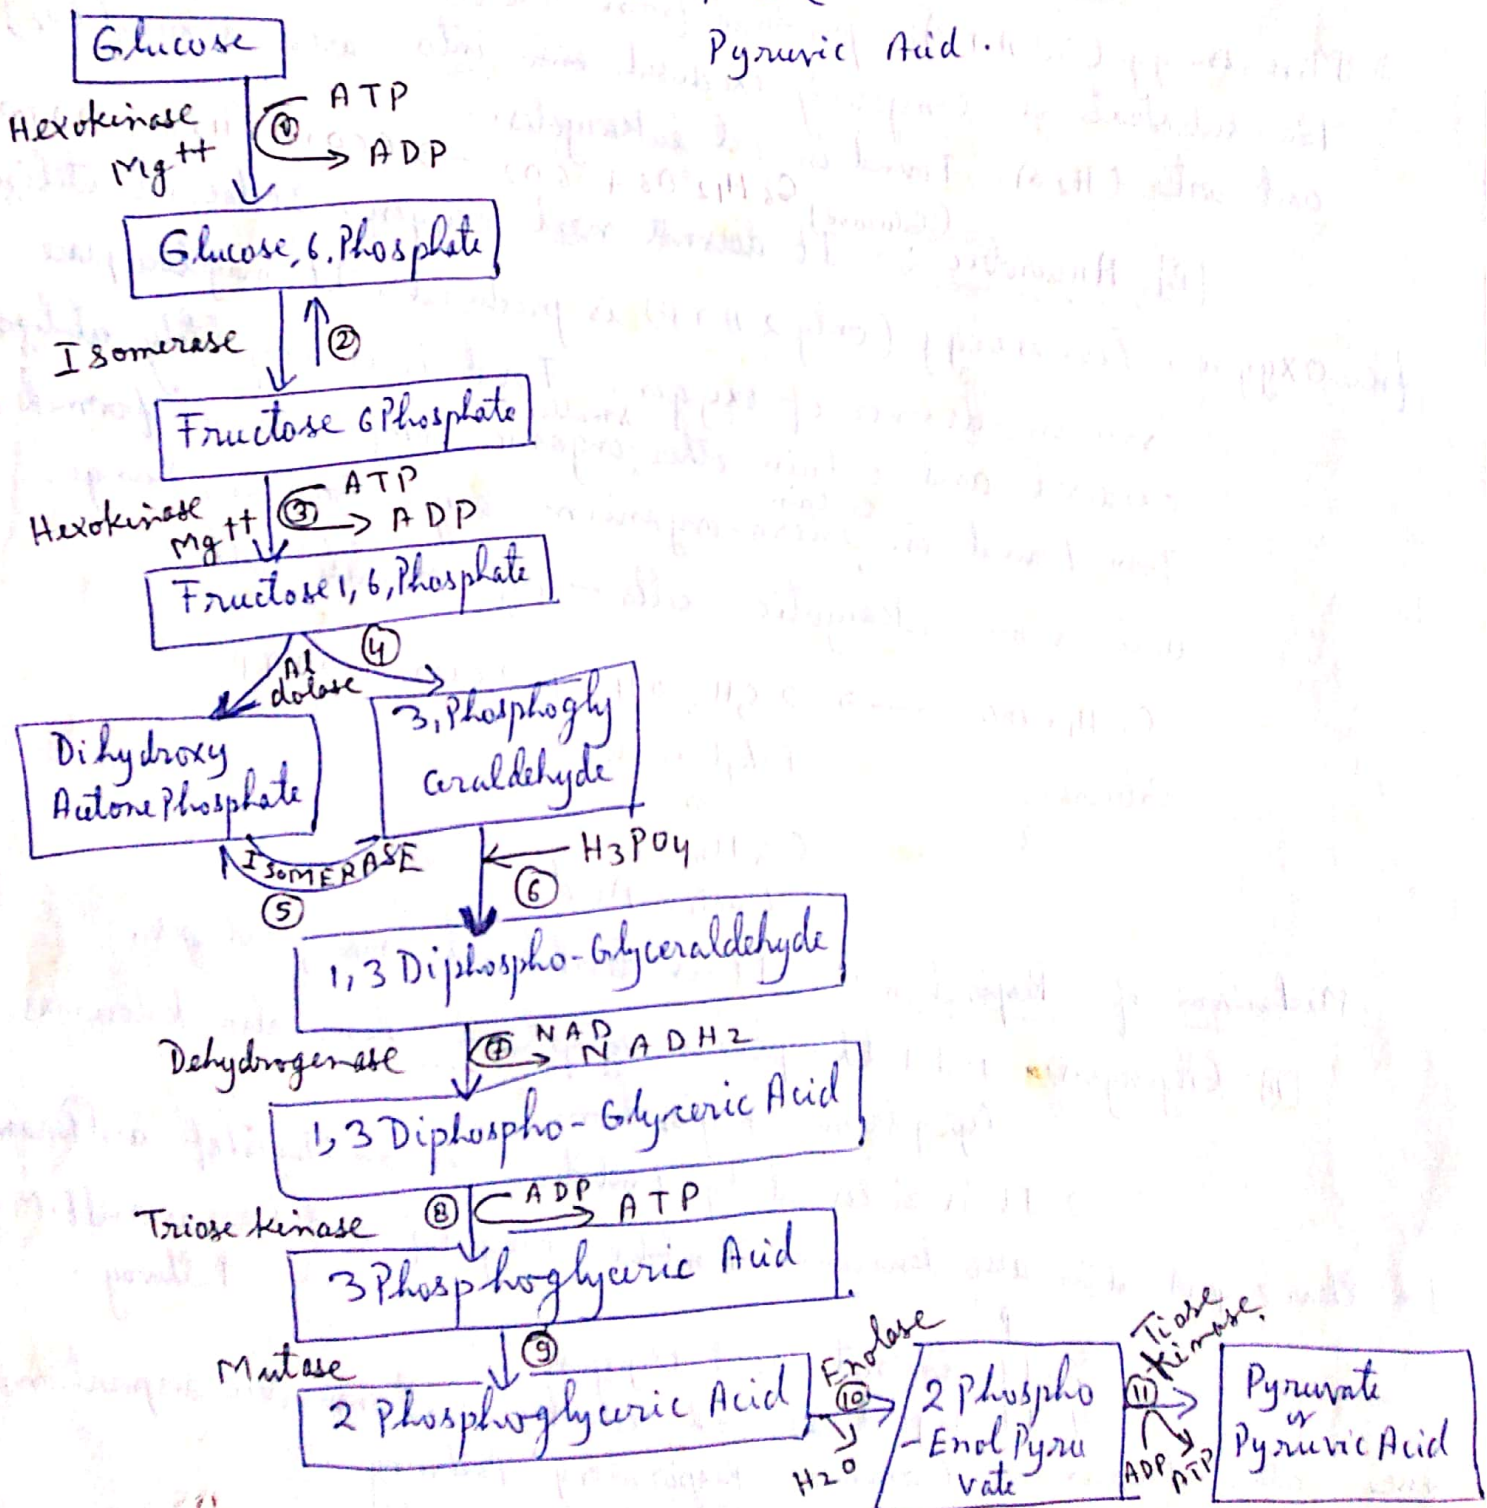 Pyruvic Acid.
Glucose
Hexokinase
Mg++
① ATP
ADP
Glucose, 6, Phosphate
Isomerase
②
Fructose 6 Phosphate
Hexokinase
Mg++
③ ATP
ADP
Fructose 1, 6, Phosphate
④
Al
dolase
Dihydroxy
Acetone Phosphate
3, Phosphogly
ceraldehyde
ISOMERASE
⑤
H3PO4
⑥
1, 3 Diphospho - Glyceraldehyde
Dehydrogenase
⑦ NAD
NADH2
1, 3 Diphospho - Glyceric Acid
Triose kinase
⑧ ADP
ATP
3 Phosphoglyceric Acid
Mutase
⑨
2 Phosphoglyceric Acid
Enolase
⑩
H2O
2 Phospho
- Enol Pyru
vate
Tiose
kinase.
⑪
ADP ATP
Pyruvate
or
Pyruvic Acid